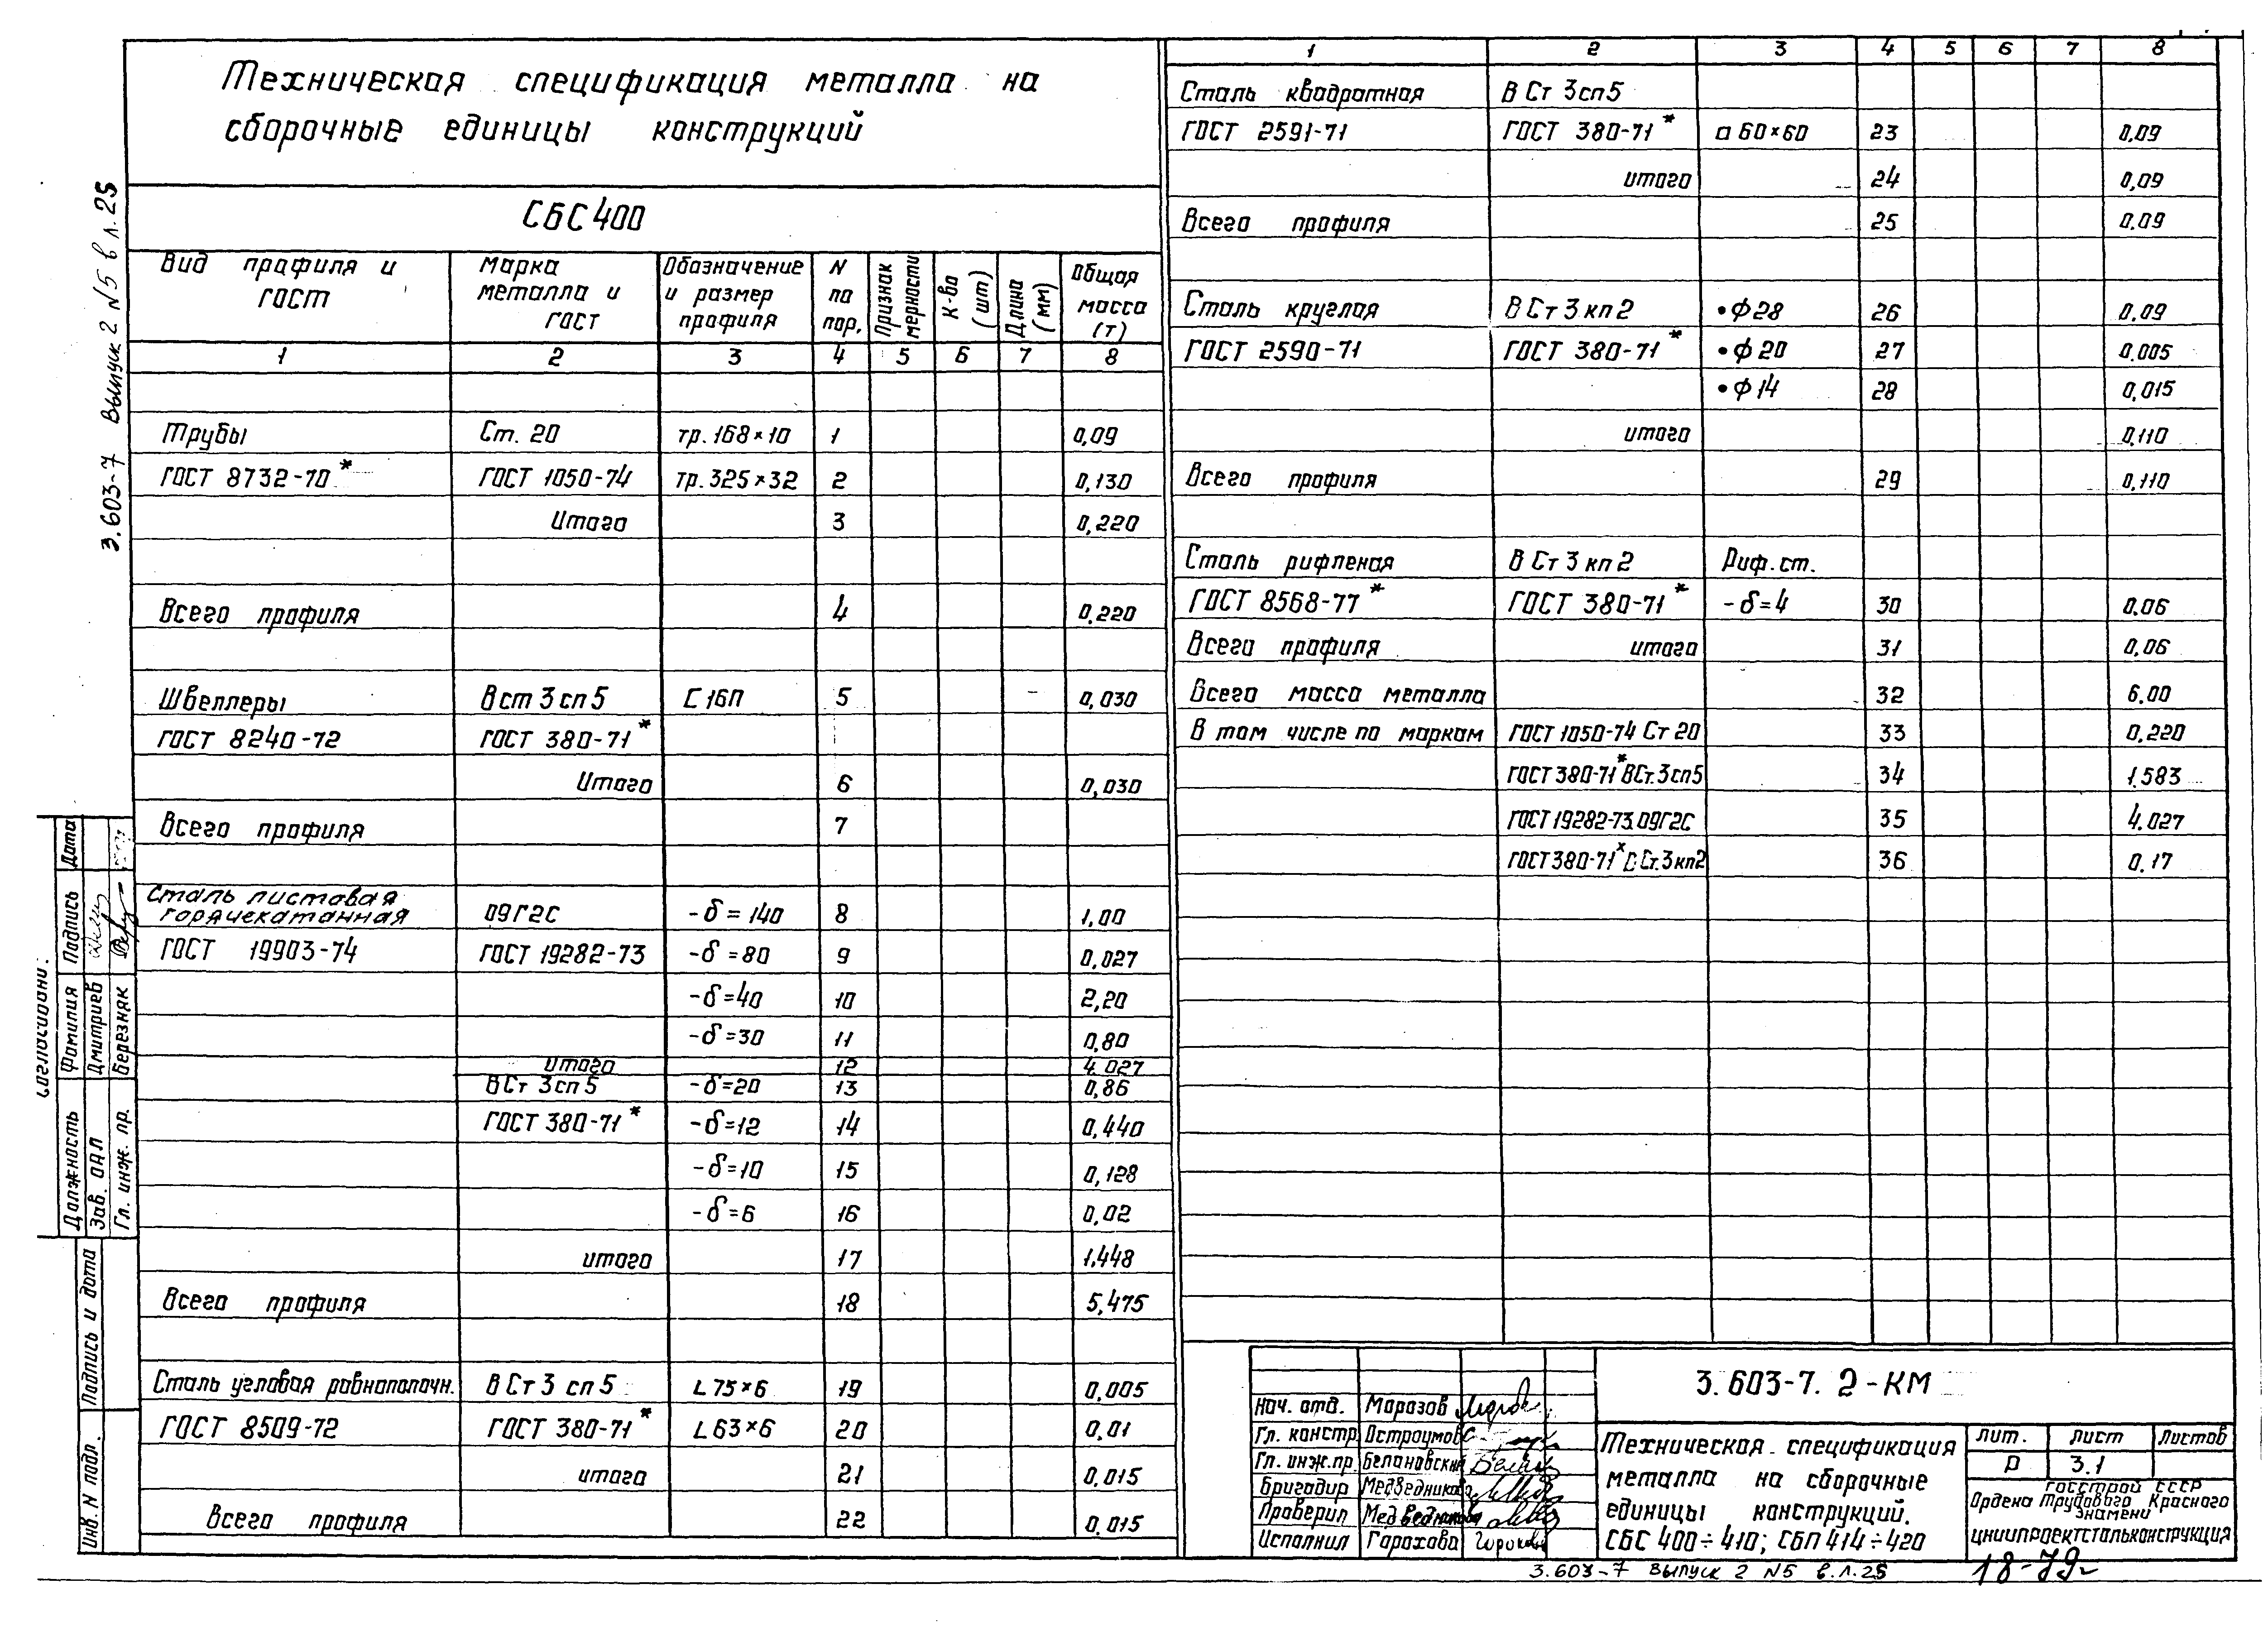 Техническая спецификация металла на
сборочные единицы конструкций
СБС 400
Вид профиля и ГОСТ | Марка металла и ГОСТ | Обозначение и размер профиля | N по пор. | Признак мерности | К-во (шт) | Длина (мм) | Общая масса (т)
1 2 3 4 5 6 7 8
Трубы Ст. 20 тр. 168×10 1 0,09
ГОСТ 8732-70* ГОСТ 1050-74 тр. 325×32 2 0,130
Итого 3 0,220
Всего профиля 4 0,220
Швеллеры В ст 3 сп 5 С 16П 5 0,030
ГОСТ 8240-72 ГОСТ 380-71*
Итого 6 0,030
Всего профиля 7
Сталь листовая
горячекатанная 09Г2С -δ = 140 8 1,00
ГОСТ 19903-74 ГОСТ 19282-73 -δ = 80 9 0,027
-δ = 40 10 2,20
-δ = 30 11 0,80
итого 12 4.027
В Ст 3 сп 5 -δ = 20 13 0,86
ГОСТ 380-71* -δ = 12 14 0,440
-δ = 10 15 0,128
-δ = 6 16 0,02
итого 17 1.448
Всего профиля 18 5,475
Сталь угловая равнополочн. В Ст 3 сп 5 L 75×6 19 0,005
ГОСТ 8509-72 ГОСТ 380-71* L 63×6 20 0,01
итого 21 0,015
Всего профиля 22 0,015
1 2 3 4 5 6 7 8
Сталь квадратная В Ст 3сп5
ГОСТ 2591-71 ГОСТ 380-71* □ 60×60 23 0,09
итого 24 0,09
Всего профиля 25 0.09
Сталь круглая В Ст 3 кп 2 •ф 28 26 0,09
ГОСТ 2590-71 ГОСТ 380-71* •ф 20 27 0.005
•ф 14 28 0,015
итого 0.110
Всего профиля 29 0,110
Сталь рифленая В Ст 3 кп 2 Риф. ст.
ГОСТ 8568-77* ГОСТ 380-71* -δ = 4 30 0.06
Всего профиля итого 31 0,06
Всего масса металла 32 6.00
В том числе по маркам ГОСТ 1050-74 Ст 20 33 0.220
ГОСТ 380-71* ВСт. 3сп5 34 1.583
ГОСТ 19282-73. 09Г2С 35 4.027
ГОСТ 380-71× ВСт. 3кп2 36 0.17
3.603-7 Выпуск 2 N5 в л. 25
Согласовано:
Должность Фамилия Подпись Дата
Зав. ОАП Дмитриев
Гл. инж. пр. Березняк
Подпись и дата
Инв. N подл.
Нач. отд. Морозов
Гл. констр. Остроумов
Гл. инж. пр. Белановский
Бригадир Медведникова
Проверил Медведникова
Исполнил Горохова
3.603-7. 2-КМ
Техническая спецификация
металла на сборочные
единицы конструкций.
СБС 400÷410; СБП 414÷420
Лит. Лист Листов
Р 3.1
Госстрой СССР
Ордена Трудового Красного
Знамени
ЦНИИПРОЕКТСТАЛЬКОНСТРУКЦИЯ
3.603-7 выпуск 2 N5 в. л. 25
18-79г